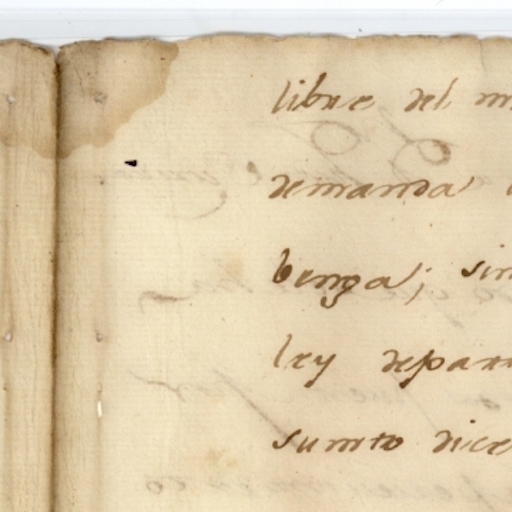 libre del m
demanda
benga; sin
ley depar
sunto dice